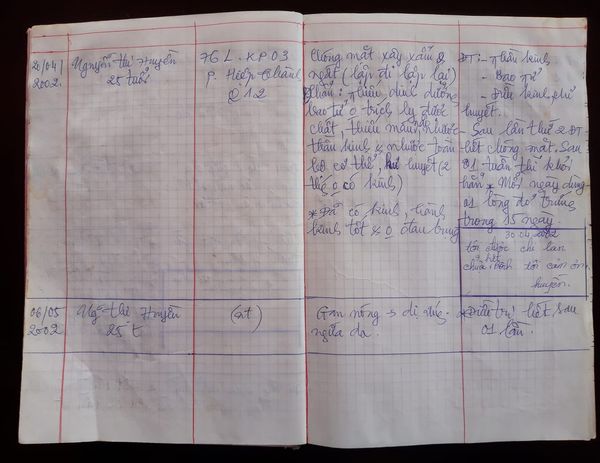 20/04/
2002.
Nguyễn thị Huyền
25 tuổi
76 L. KP03
P. Hiệp Thành
Q12
Chóng mặt xây xẩm
ngất (lập đi lập lại)
thiếu dinh dưỡng
bao tử 0 trích ly được
chất, thiếu máu, nhược
thần kinh nhược toàn
bộ cơ thể, huyết (2
0 có kinh)
* Đã có kinh, hành
kinh tốt 0 đau bụng
ĐT: - Thần kinh
- Bao tử
- Điều kinh phủ
huyết.
- Sau lần thứ 2 ĐT
hết chóng mặt. Sau
01 tuần thì khỏi
hẳn * Mỗi ngày dùng
01 lòng đỏ trứng
trong 15 ngày.
30 04 2002
tôi được chị lan
chữa hết bệnh tôi cảm ơn
huyền.
06/05
2002
Ng~ thị Huyền
25 t
(nt)
Gan nóng → dị ứng.
ngứa da.
* Điều trị hết sau
01 lần.